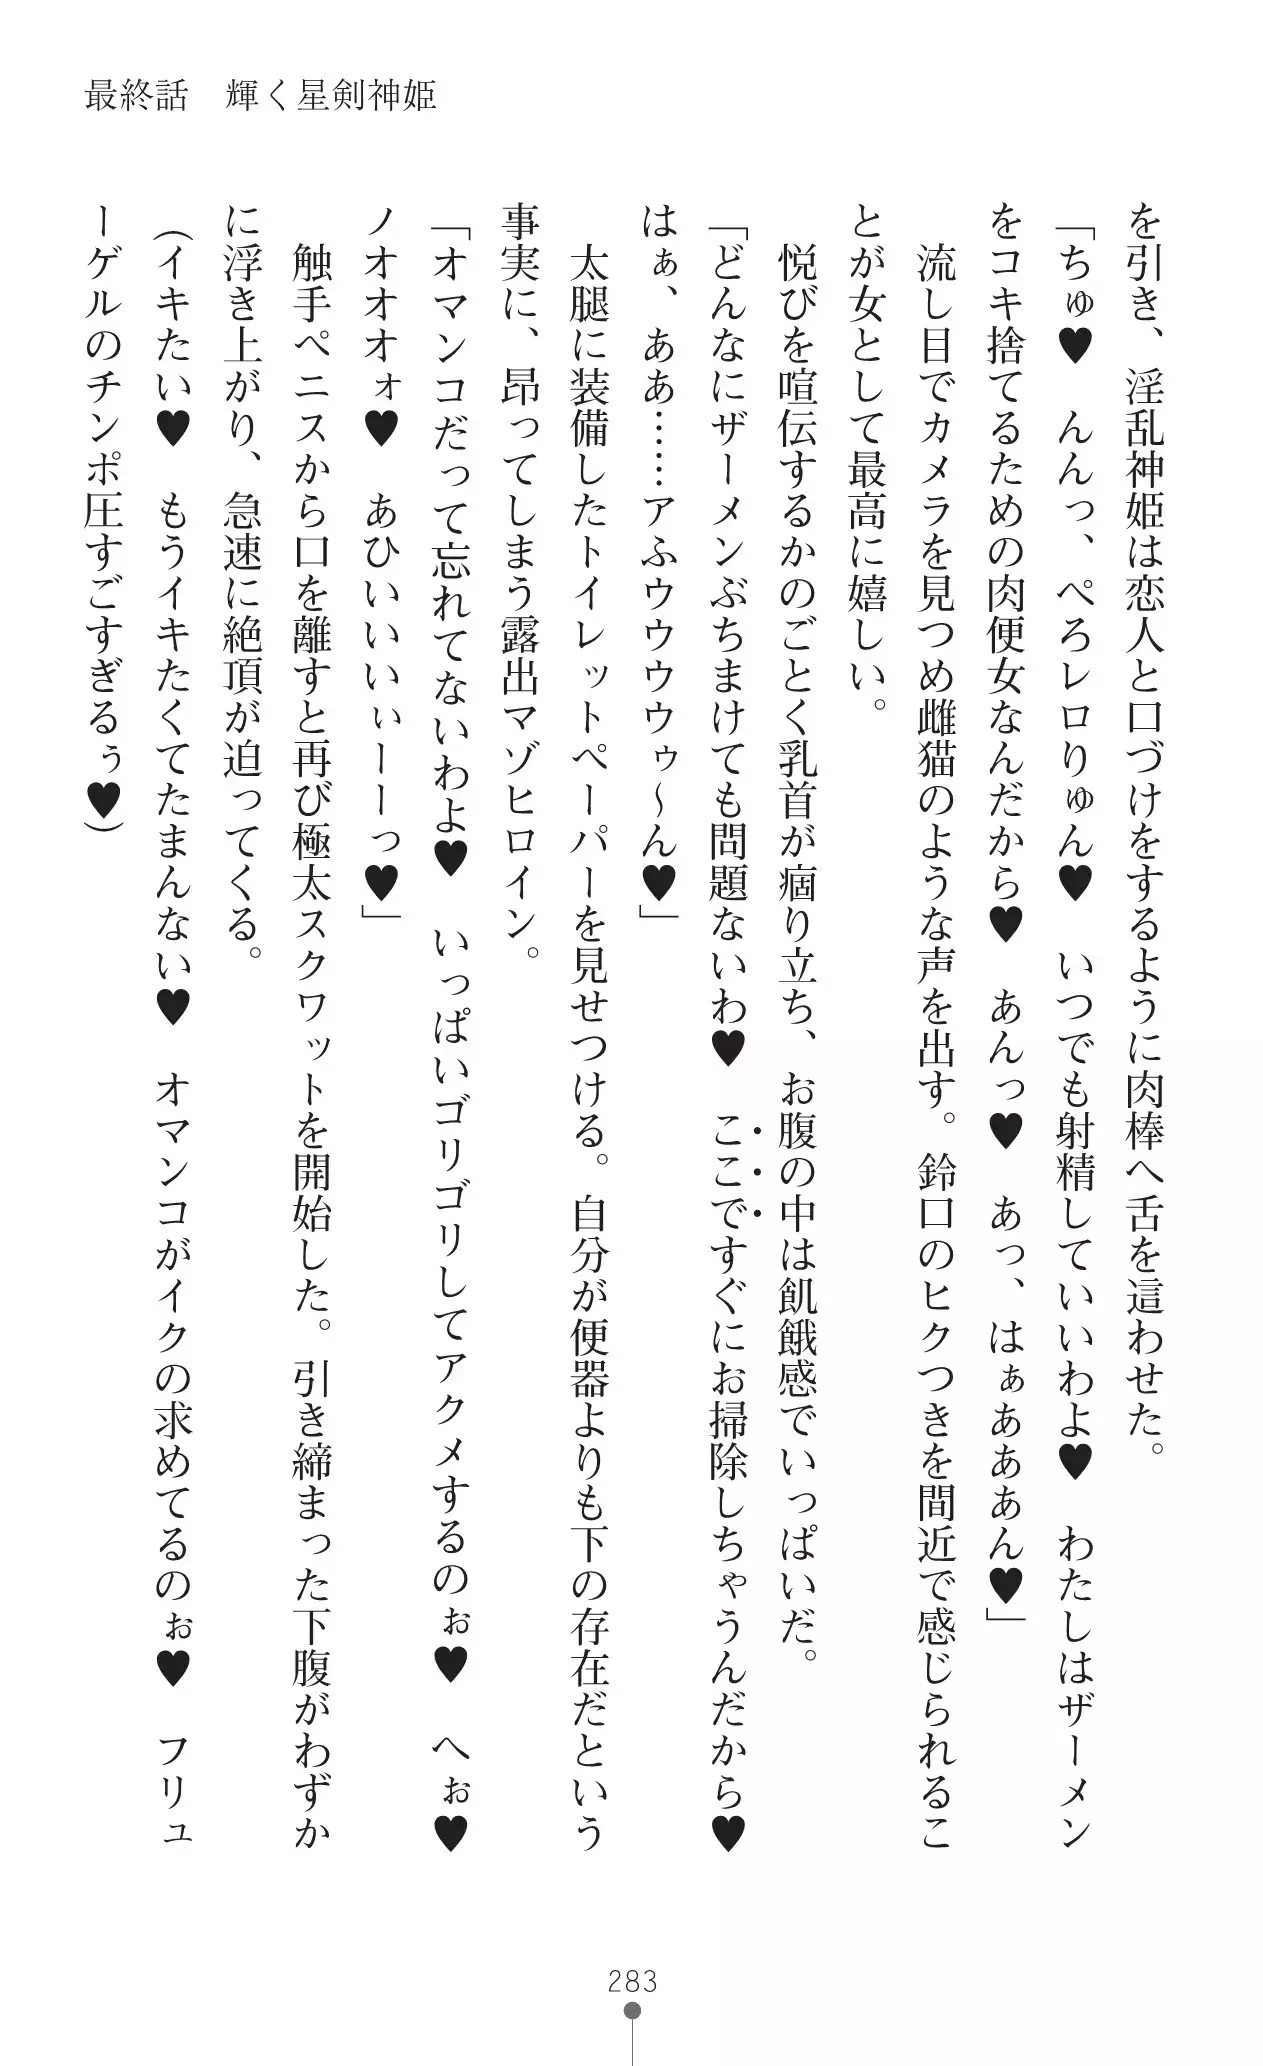 最終話　輝く星剣神姫
を引き、淫乱神姫は恋人と口づけをするように肉棒へ舌を這わせた。
「ちゅ♥　んんっ、ぺろレロりゅん♥　いつでも射精していいわよ♥　わたしはザーメン
をコキ捨てるための肉便女なんだから♥　あんっ♥　あっ、はぁあああん♥」
　流し目でカメラを見つめ雌猫のような声を出す。鈴口のヒクつきを間近で感じられるこ
とが女として最高に嬉しい。
　悦びを喧伝するかのごとく乳首が痼り立ち、お腹の中は飢餓感でいっぱいだ。
「どんなにザーメンぶちまけても問題ないわ♥　ここですぐにお掃除しちゃうんだから♥
はぁ、ああ……アふウウウウゥ～ん♥」
　太腿に装備したトイレットペーパーを見せつける。自分が便器よりも下の存在だという
事実に、昂ってしまう露出マゾヒロイン。
「オマンコだって忘れてないわよ♥　いっぱいゴリゴリしてアクメするのぉ♥　へぉ♥
ノオオオォ♥　あひいいいぃーーっ♥」
　触手ペニスから口を離すと再び極太スクワットを開始した。引き締まった下腹がわずか
に浮き上がり、急速に絶頂が迫ってくる。
(イキたい♥　もうイキたくてたまんない♥　オマンコがイクの求めてるのぉ♥　フリュ
ーゲルのチンポ圧すごすぎるぅ♥)
283